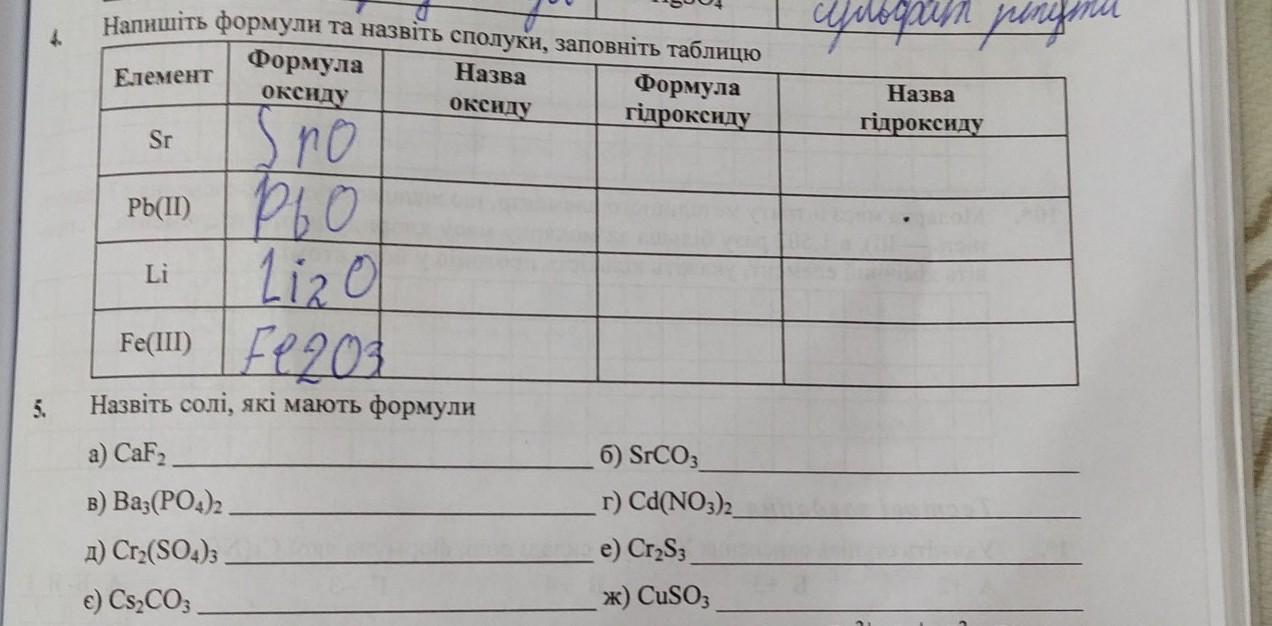 сульфат ртути
4. Напишіть формули та назвіть сполуки, заповніть таблицю
Елемент Формула оксиду Назва оксиду Формула гідроксиду Назва гідроксиду
Sr SrO
Pb(II) PbO
Li Li2O
Fe(III) Fe2O3
5. Назвіть солі, які мають формули
а) CaF₂ б) SrCO₃
в) Ba₃(PO₄)₂ г) Cd(NO₃)₂
д) Cr₂(SO₄)₃ е) Cr₂S₃
є) Cs₂CO₃ ж) CuSO₃